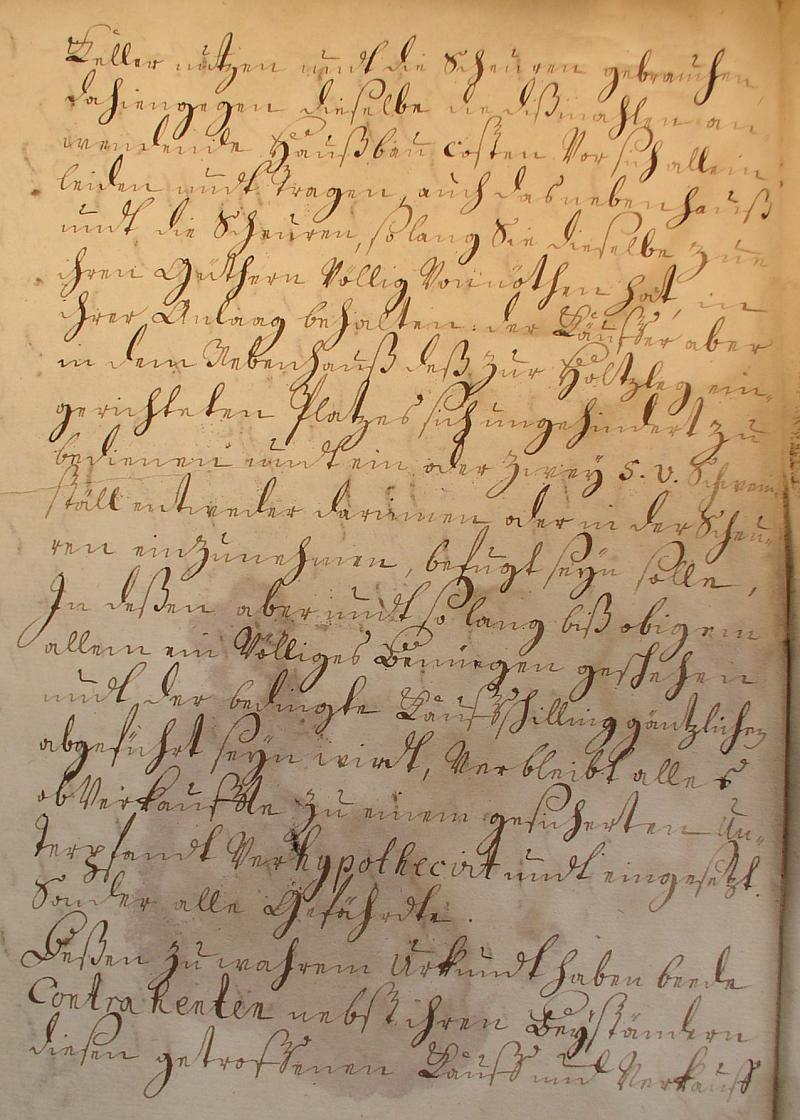 Keller nutzen undt die Scheuren gebrauchen,
dahiengegen dieselbe die dißmahlen an
wendende Haußbau Costen Vor sich allein
leiden undt tragen, auch das nebenhauß
undt die Scheuren, so lang Sie dieselbe zue
ihren Güthern Völlig Vonnöthen hat, in
ihrer Anlaag behalten. der Käuffer aber
in dem Nebenhauß deß zur Höltzleg ein-
gerichteten Platzes sich ungehindert zu
bedienen undt ein oder zwey S. V. Schwein
ställ entweder darinnen oder in der Scheu-
ren einzunehmen, befugt seyn solle,
In deßen aber undt so lang biß obigem
allem ein Völliges Benüegen geschehen
undt der bedingte Kauffschilling gäntzlichen
abgeführt seyn wirdt, Verbleibt alles
ob Verkauffte zu einem gesicherten Un-
terpfandt Verhypothecirt undt eingesetzt.
Sonder alle Gefährdte.
Deßen zu wahrem Urkundt haben beede
Contrahenten nebst ihren Beyständern
diesen getroffenen Kauff und Verkauff